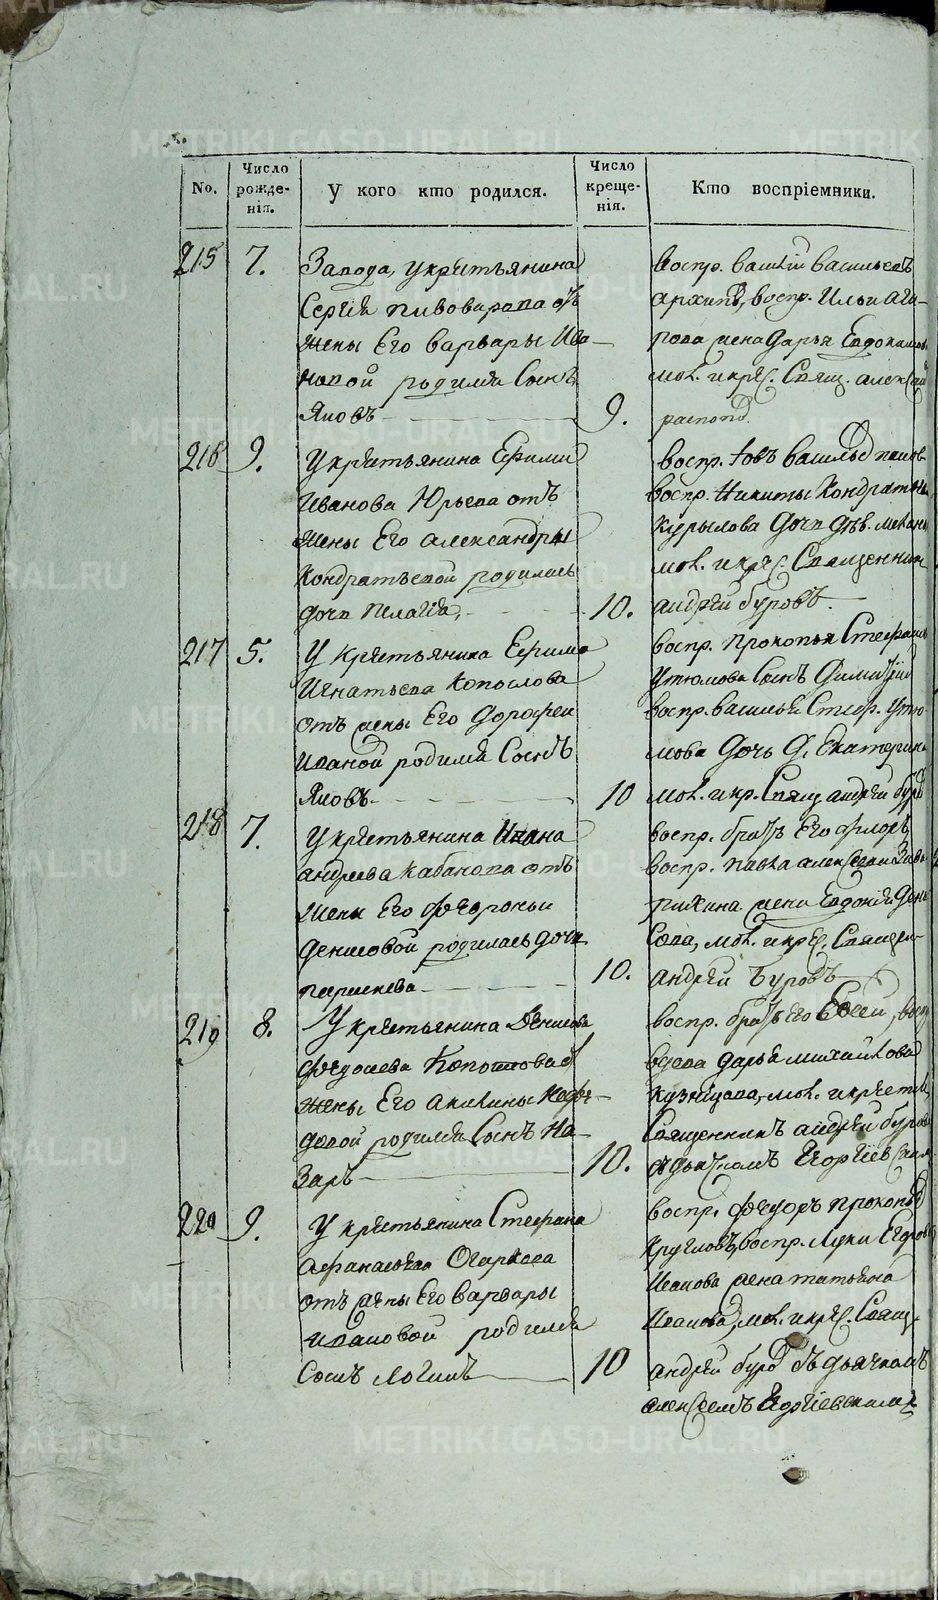 No.
Число рожде-нія.
У кого кто родился.
Число креще-нія.
Кто воспріемники.
215
7.
Завода, у крестьянина
Сергія Пивоварова отъ
жены Его Варвары Ива-
новой родился Сынъ
Яковъ
9.
Воспр. Василій Васильевъ
Архип, воспр. Ильи
жена Дарья Евдокимов
мол. и крес. Свящ. Алексѣй
216
9.
У крестьянина Ефима
Иванова Юрьева отъ
жены Его Александры
Кондратьевой родилась
дочь Пелагія,
10.
воспр. Іовъ
воспр. Никиты Кондратьев
Курылова дочь дѣв.
мол. и крес. Священник
Андрей Буровъ.
217
5.
У крестьянина Ефима
Игнатьева Копослова
отъ жены Его Дорофеи
Иваной родился Сынъ
Яковъ
10
воспр. Прокопья Стефан
Утюмова Сынъ Димитрій
воспр. Василья Стеф. Утю-
мова дочь д. Екатерина
мол. и кр. Свящ. Андрей Буров
218
7.
У крестьянина Ивана
Андреева Кабанова отъ
жены Его Февроньи
Денисовой родилась дочь
Параскева
10.
воспр. братъ Его Флоръ,
воспр. Павла Алексѣева
жена Евдокія Дени
сова, мол. и крес. Священ-
Андрей Буровъ
219
8.
У крестьянина Дениса
Федосеева Копослова от
жены Его Акилины Нефе-
довой родился Сынъ На-
заръ
10.
воспр. братъ Его Евсей, воспр
вдова Дарья Михайлова
Кузнецова, мол. и крестил
Священникъ Андрей Буров
съ дьячкомъ Егоріевским
220
9.
У крестьянина Стефана
Афанасьева Огаркова
отъ жены Его Варвары
Ивановой родился
Сынъ Логинъ
10
воспр. Федоръ Прокопьев
Кругловъ, воспр. Луки Егоров
Иванова жена Татьяна
Иванова, мол. и крес. Свящ.
Андрей Буров съ дьячкомъ
Алексеемъ Егоріевскимъ
METRIKI.GASO-URAL.RU